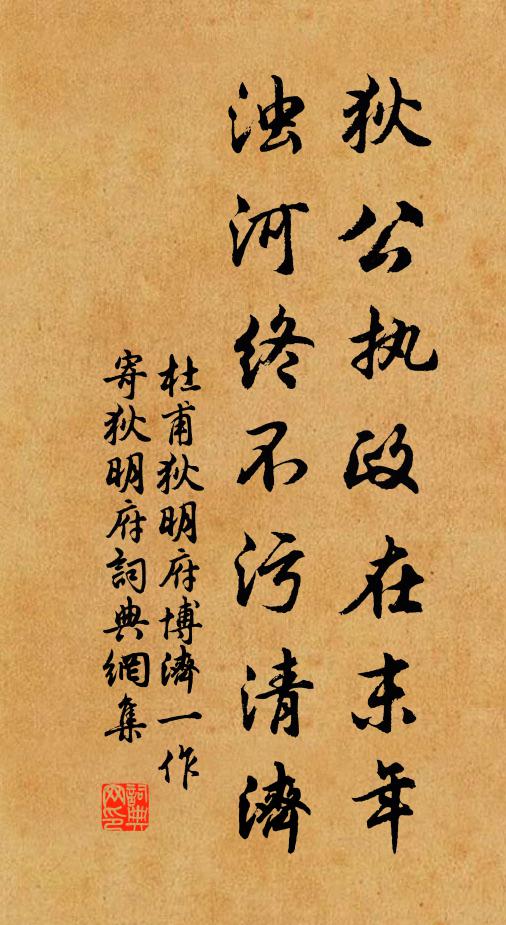 狄公执政在末年
浊河终不污清濟
杜甫狄明府博濟一作
寄狄明府詞典網集
詞典
网印